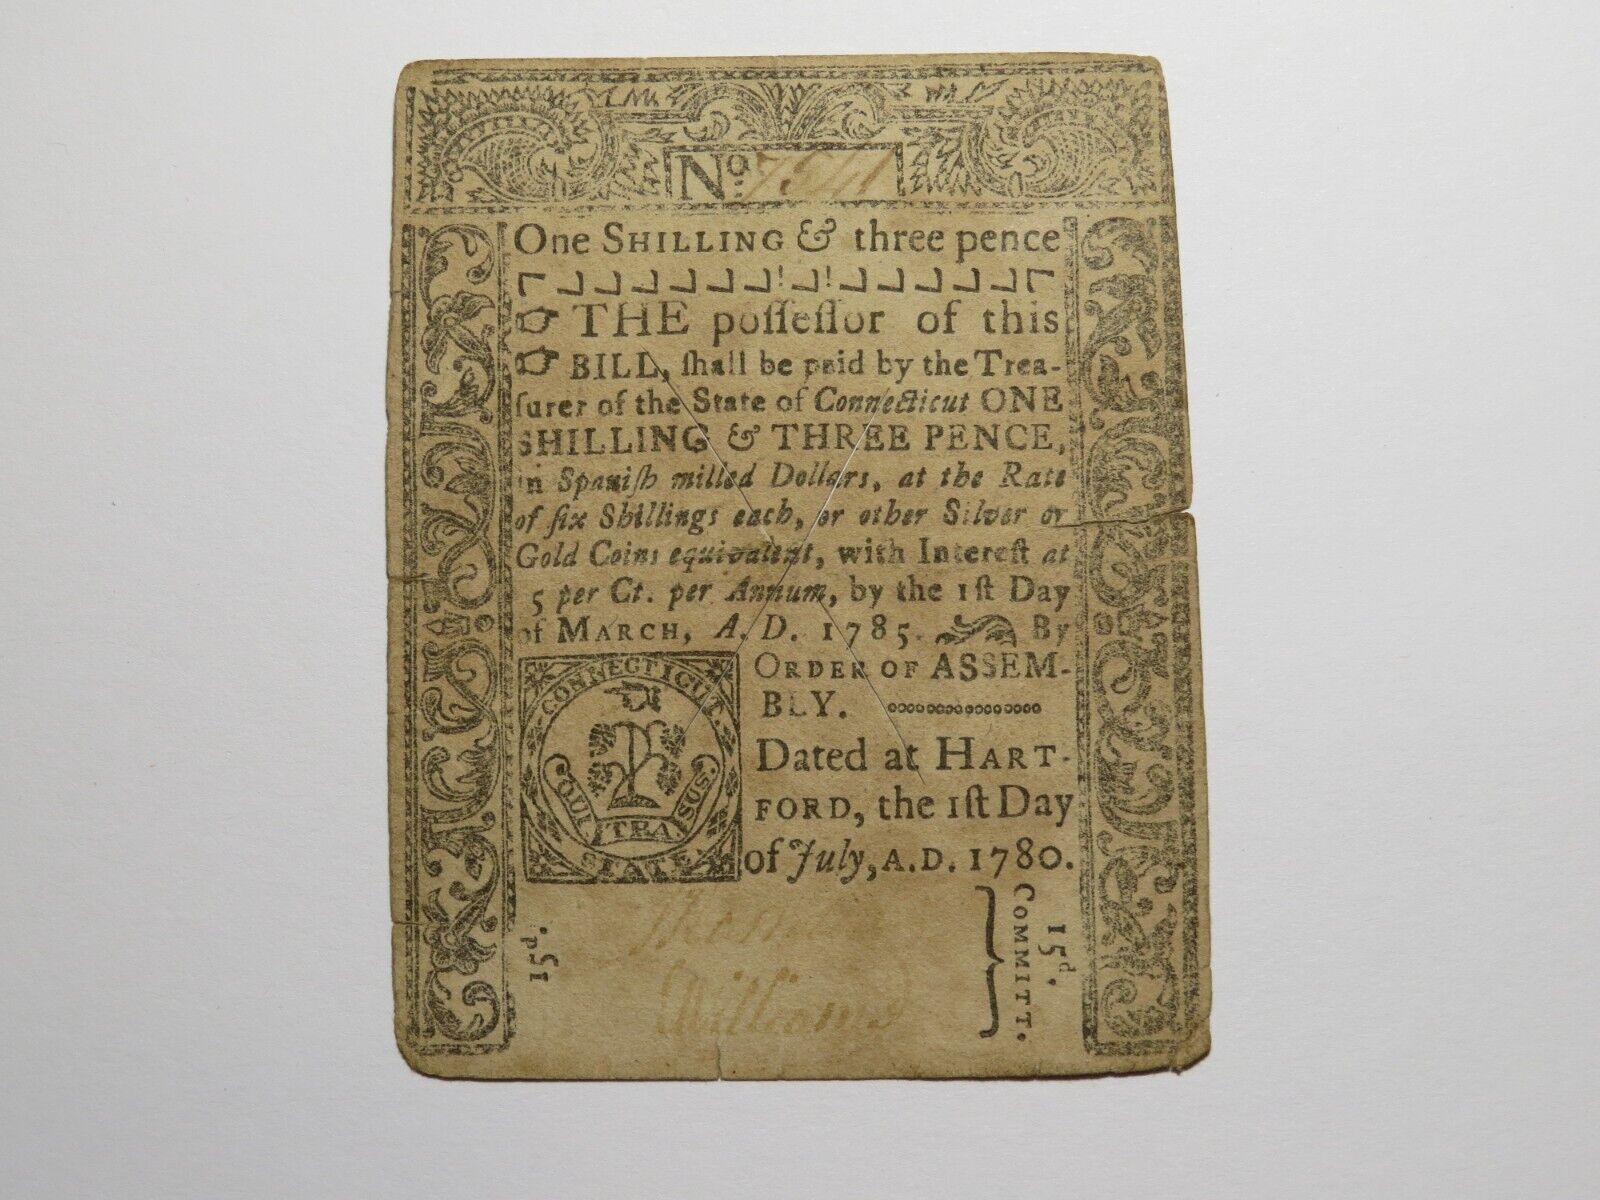 No. 7541
One SHILLING & three pence
THE poſſeſſor of this
BILL, ſhall be paid by the Trea-
ſurer of the State of Connecticut ONE
SHILLING & THREE PENCE,
in Spaniſh milled Dollars, at the Rate
of ſix Shillings each, or other Silver or
Gold Coins equivalent, with Intereſt at
5 per Ct. per Annum, by the 1ſt Day
of MARCH, A. D. 1785. By
ORDER OF ASSEM-
BLY.
Dated at HART-
FORD, the 1ſt Day
of July, A.D. 1780.
CONNECTICUT
QUI TRA SUS.
STATE
15d.
Williams
COMMITT.
15d.